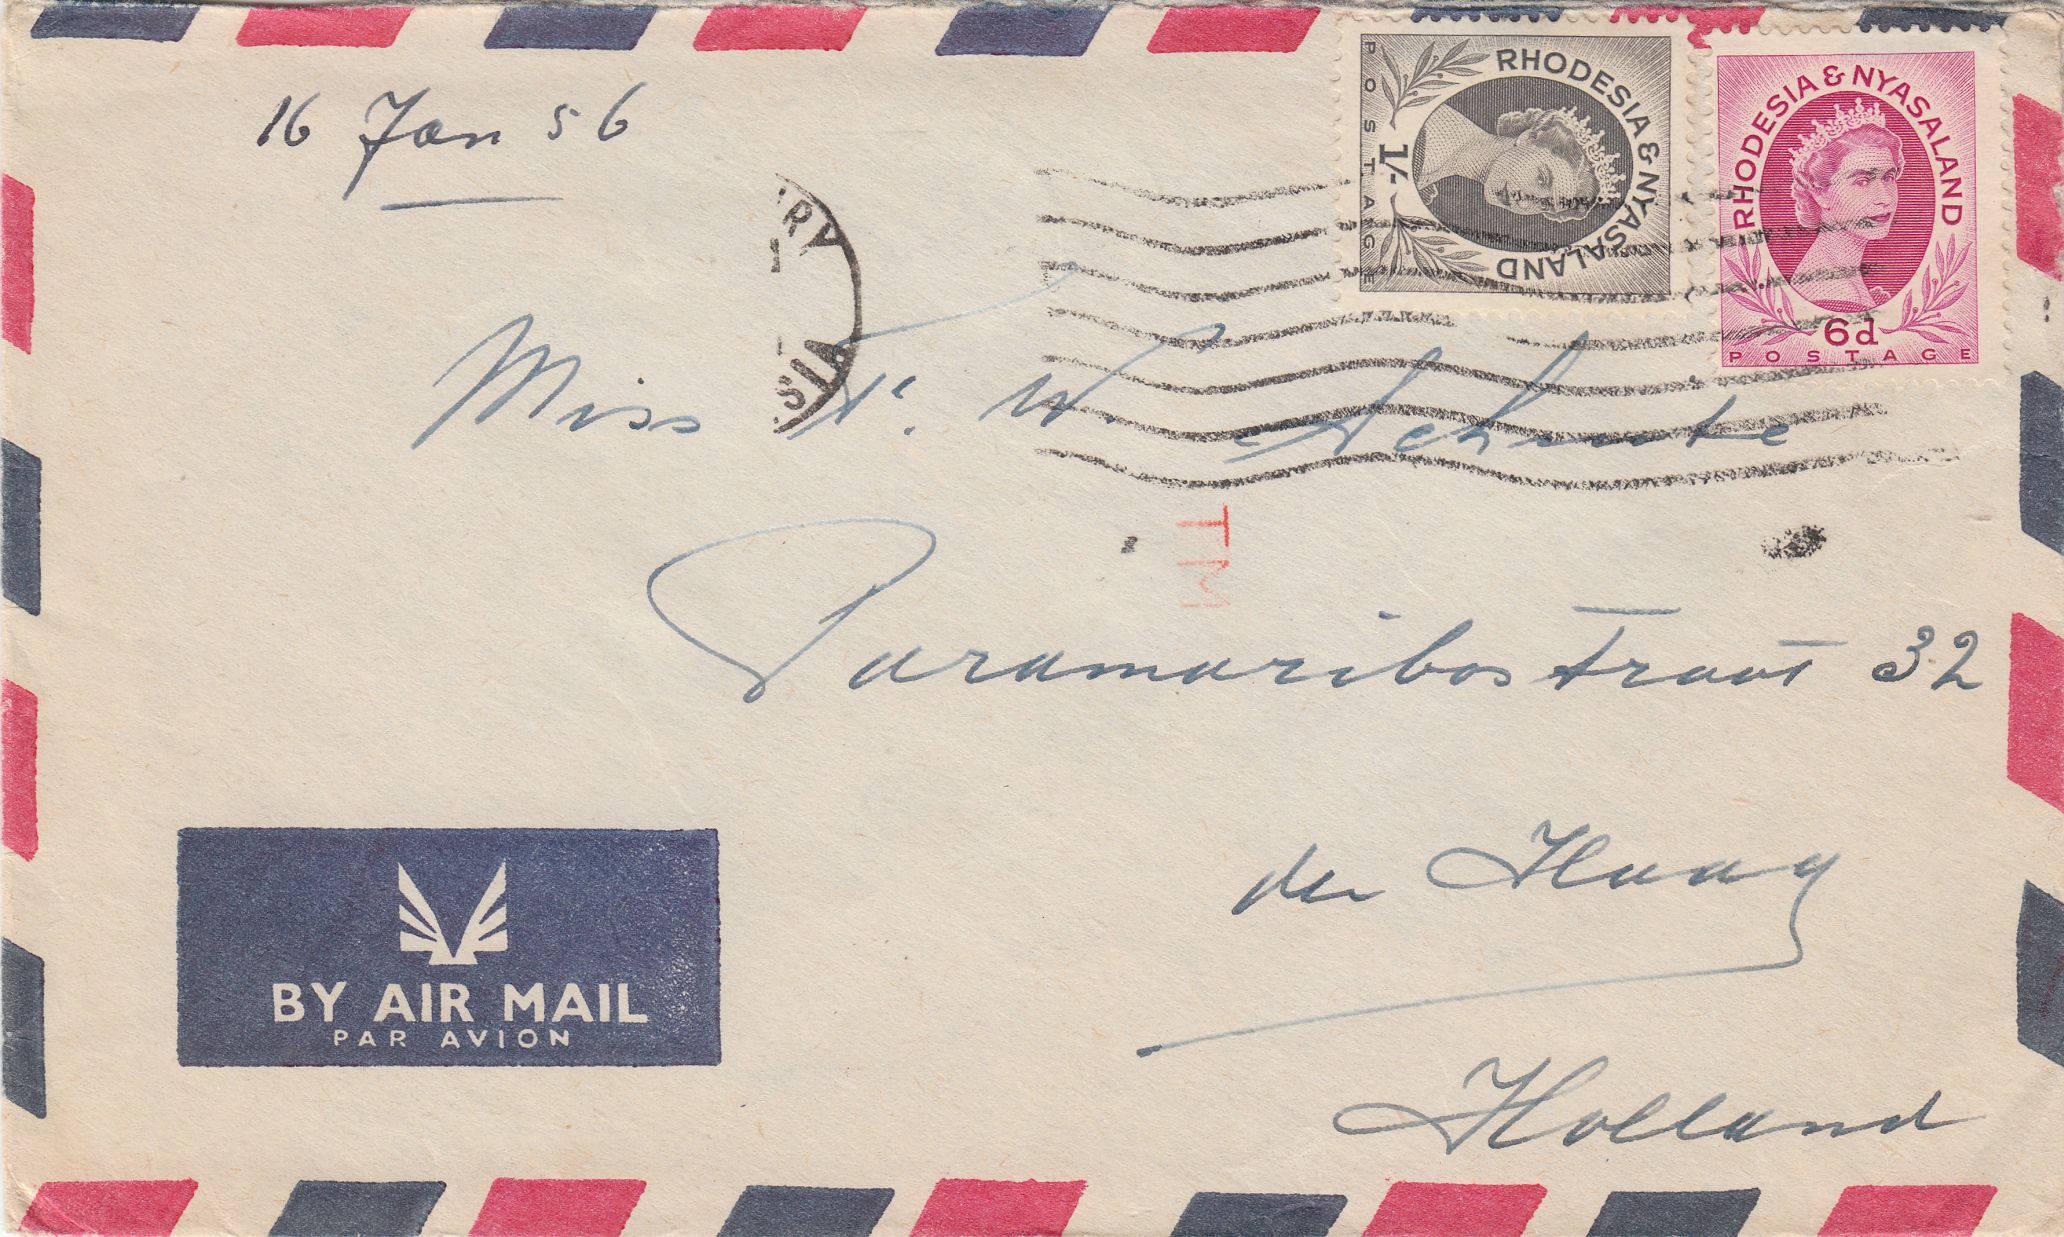 16 Jan 56
RHODESIA & NYASALAND
POSTAGE
1/-
RHODESIA & NYASALAND
6d
POSTAGE
RY
SIA
Miss T. W. Schute
TM
Paramaribostraat 32
den Haag
Holland
BY AIR MAIL
PAR AVION